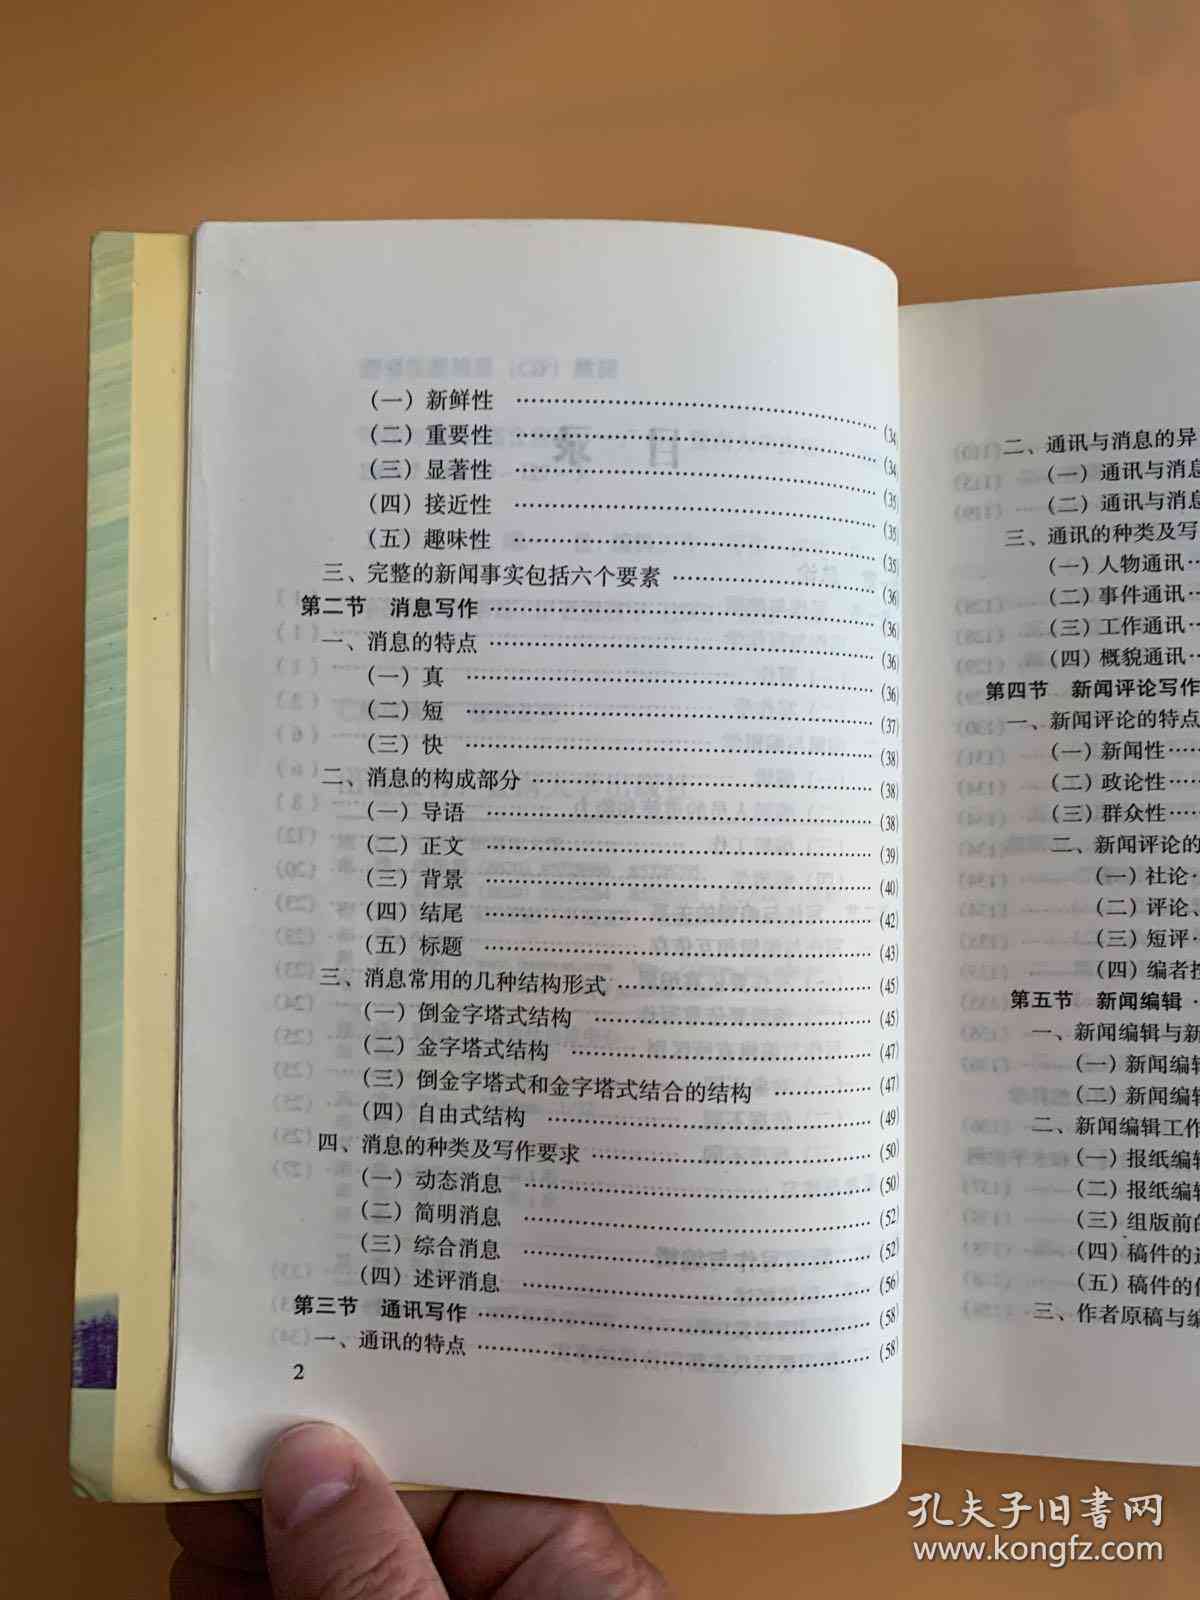 （一）新鲜性 ……………………………… (34
（二）重要性 ……………………………… (34
（三）显著性 ……………………………… (35
（四）接近性 ……………………………… (35
（五）趣味性 ……………………………… (35
三、完整的新闻事实包括六个要素 ……………… (36)
第二节 消息写作 ……………………………… (36)
一、消息的特点 ……………………………… (36)
（一）真 ……………………………… (36)
（二）短 ……………………………… (37)
（三）快 ……………………………… (38)
二、消息的构成部分 ……………………………… (38)
（一）导语 ……………………………… (38)
（二）正文 ……………………………… (39)
（三）背景 ……………………………… (40)
（四）结尾 ……………………………… (42)
（五）标题 ……………………………… (43)
三、消息常用的几种结构形式 ……………………… (45)
（一）倒金字塔式结构 ……………………… (45)
（二）金字塔式结构 ……………………… (47)
（三）倒金字塔式和金字塔式结合的结构 ………… (47)
（四）自由式结构 ……………………… (49)
四、消息的种类及写作要求 ……………………… (50)
（一）动态消息 ……………………… (50)
（二）简明消息 ……………………… (52)
（三）综合消息 ……………………… (52)
（四）述评消息 ……………………… (56)
第三节 通讯写作 ……………………………… (58)
一、通讯的特点 ……………………………… (58)
2
二、通讯与消息的异
（一）通讯与消息
（二）通讯与消息
三、通讯的种类及写
（一）人物通讯…
（二）事件通讯…
（三）工作通讯…
（四）概貌通讯…
第四节 新闻评论写作
一、新闻评论的特点
（一）新闻性……
（二）政论性……
（三）群众性……
二、新闻评论的
（一）社论…
（二）评论、
（三）短评…
（四）编者按
第五节 新闻编辑…
一、新闻编辑与新
（一）新闻编辑
（二）新闻编辑
二、新闻编辑工作
（一）报纸编辑
（二）报纸编辑
（三）组版前的
（四）稿件的
（五）稿件的
三、作者原稿与编
孔夫子旧书网
www.kongfz.com